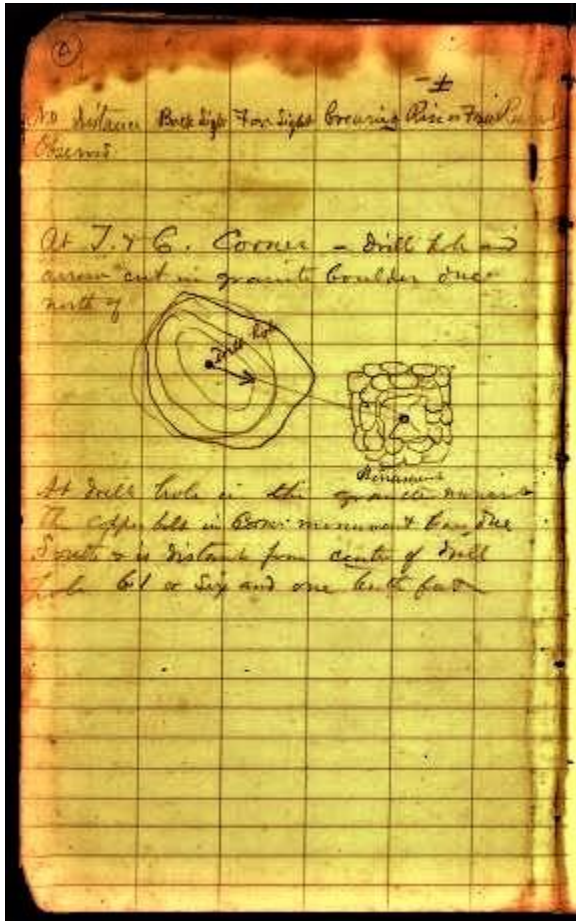 A
- ±
No Distance Back Sight Fore Sight Bearing Rise or Fall
Observd
At T. & C. Corner - Drill hole and
arrow cut in granite boulder due
north of
Drill hole
Monument
At drill hole in the granite
the copper bolt in Corner monument & bears due
South & is distant from center of drill
hole 6.1 or Six and one tenth feet